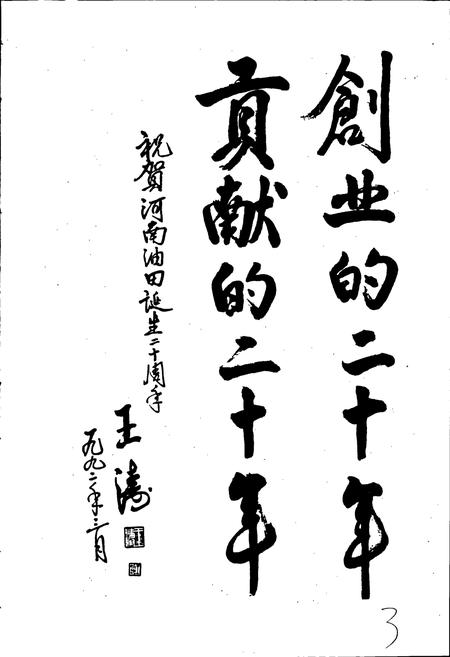 創业的二十年
贡献的二十年
祝賀河南油田誕生二十周年
王濤
一九九二年三月
3